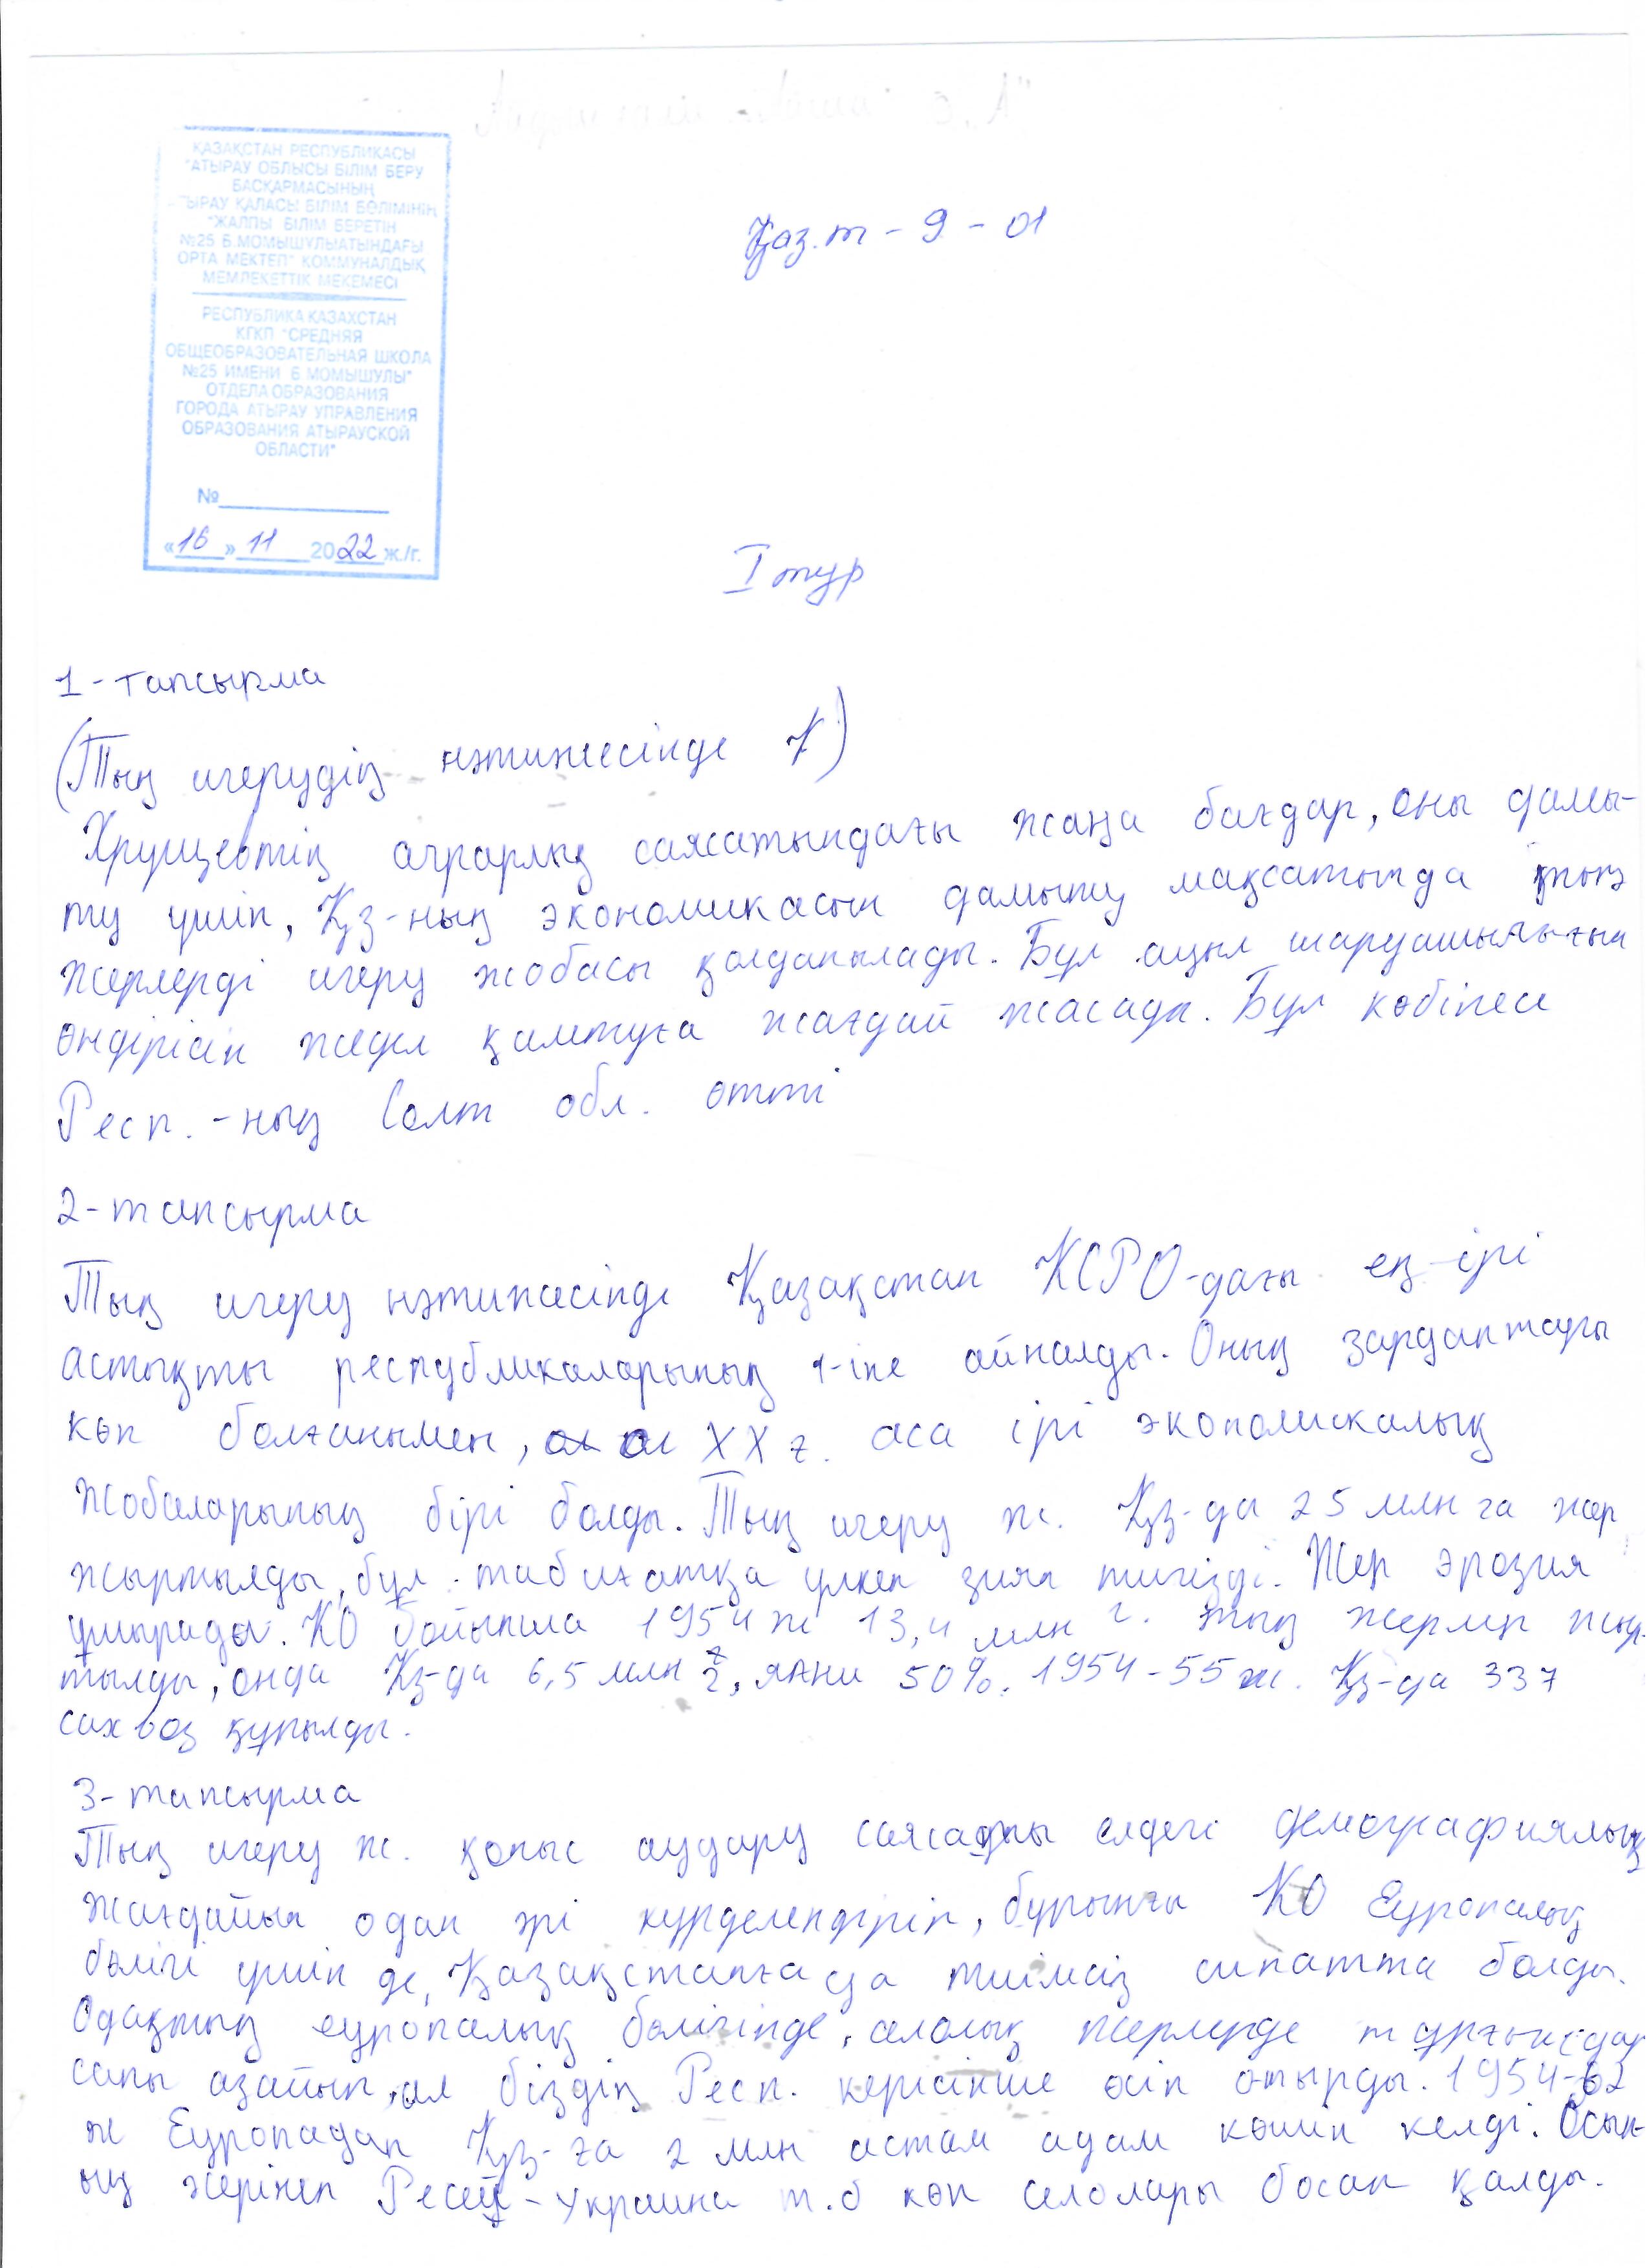 ҚАЗАҚСТАН РЕСПУБЛИКАСЫ
"АТЫРАУ ОБЛЫСЫ БІЛІМ БЕРУ
БАСҚАРМАСЫНЫҢ
ЫРАУ ҚАЛАСЫ БІЛІМ БӨЛІМІНІҢ
"ЖАЛПЫ БІЛІМ БЕРЕТІН
№25 Б.МОМЫШҰЛЫАТЫНДАҒЫ
ОРТА МЕКТЕП" КОММУНАЛДЫҚ
МЕМЛЕКЕТТІК МЕКЕМЕСІ
РЕСПУБЛИКА КАЗАХСТАН
КГКП "СРЕДНЯЯ
ОБЩЕОБРАЗОВАТЕЛЬНАЯ ШКОЛА
№25 ИМЕНИ Б МОМЫШУЛЫ"
ОТДЕЛА ОБРАЗОВАНИЯ
ГОРОДА АТЫРАУ УПРАВЛЕНИЯ
ОБРАЗОВАНИЯ АТЫРАУСКОЙ
ОБЛАСТИ"
№
«16» 11 2022 ж./г.
Қаз.т - 9 - 01
I тур
1-тапсырма
(Тың игерудің нәтижесінде Қ)
Хрущевтің аграрлық саясатындағы жаңа бағдар, оны дамы-
ту үшін, Қз-ның экономикасын дамыту мақсатында тың
жерлерді игеру жобасы қолданылады. Бұл ауыл шаруашылығын
өндірісін жедел қамтуға жағдай жасады. Бұл көбінесе
Респ.-ның Солт обл. өтті
2-тапсырма
Тың игеру нәтижесінде Қазақстан КСРО-дағы ең ірі
астықты республикаларының 1-іне айналды. Оның зардаптары
көп болғанымен, ол XX ғ. аса ірі экономикалық
жобаларының бірі болды. Тың игеру ж. Қз-да 25 млн га жер
жыртылды, бұл табиғатқа үлкен зиян тигізді. Жер эрозия
ұшырады. КО бойынша 1954 ж 13,4 млн г. тың жерлер жыр-
тылды, онда Қз-да 6,5 млн г, яғни 50%. 1954-55 ж. Қз-да 337
сахвоз құрылды.
3-тапсырма
Тың игеру ж. қоныс аудару саясаты елдегі демографиялық
жағдайын одан әрі күрделендіріп, бұрынғы КО Еуропалық
бөлігі үшін де, Қазақстанға да тиімсіз сипатта болды.
Одақтың еуропалық бөлігінде, селолық жерлерде тұрғындар
саны азайып, ал біздің Респ. керісінше өсіп отырды. 1954-62
ж Еуропадан Қз-ға 2 млн астам адам көшіп келді. Осын-
ың әсерінен Ресей-Украина т.б көп селолары босап қалды.